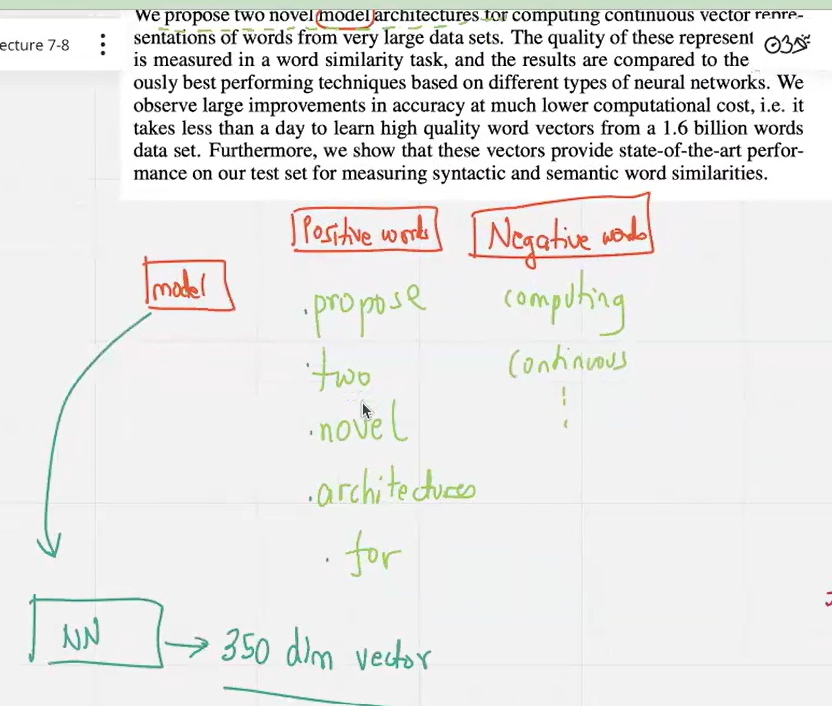 We propose two novel model architectures for computing continuous vector repre-
ecture 7-8
sentations of words from very large data sets. The quality of these represent
is measured in a word similarity task, and the results are compared to the
ously best performing techniques based on different types of neural networks. We
observe large improvements in accuracy at much lower computational cost, i.e. it
takes less than a day to learn high quality word vectors from a 1.6 billion words
data set. Furthermore, we show that these vectors provide state-of-the-art perfor-
mance on our test set for measuring syntactic and semantic word similarities.
Positive words
Negative words
model
.propose
computing
.two
continuous
.novel
.architectures
. for
NN
350 dim vector